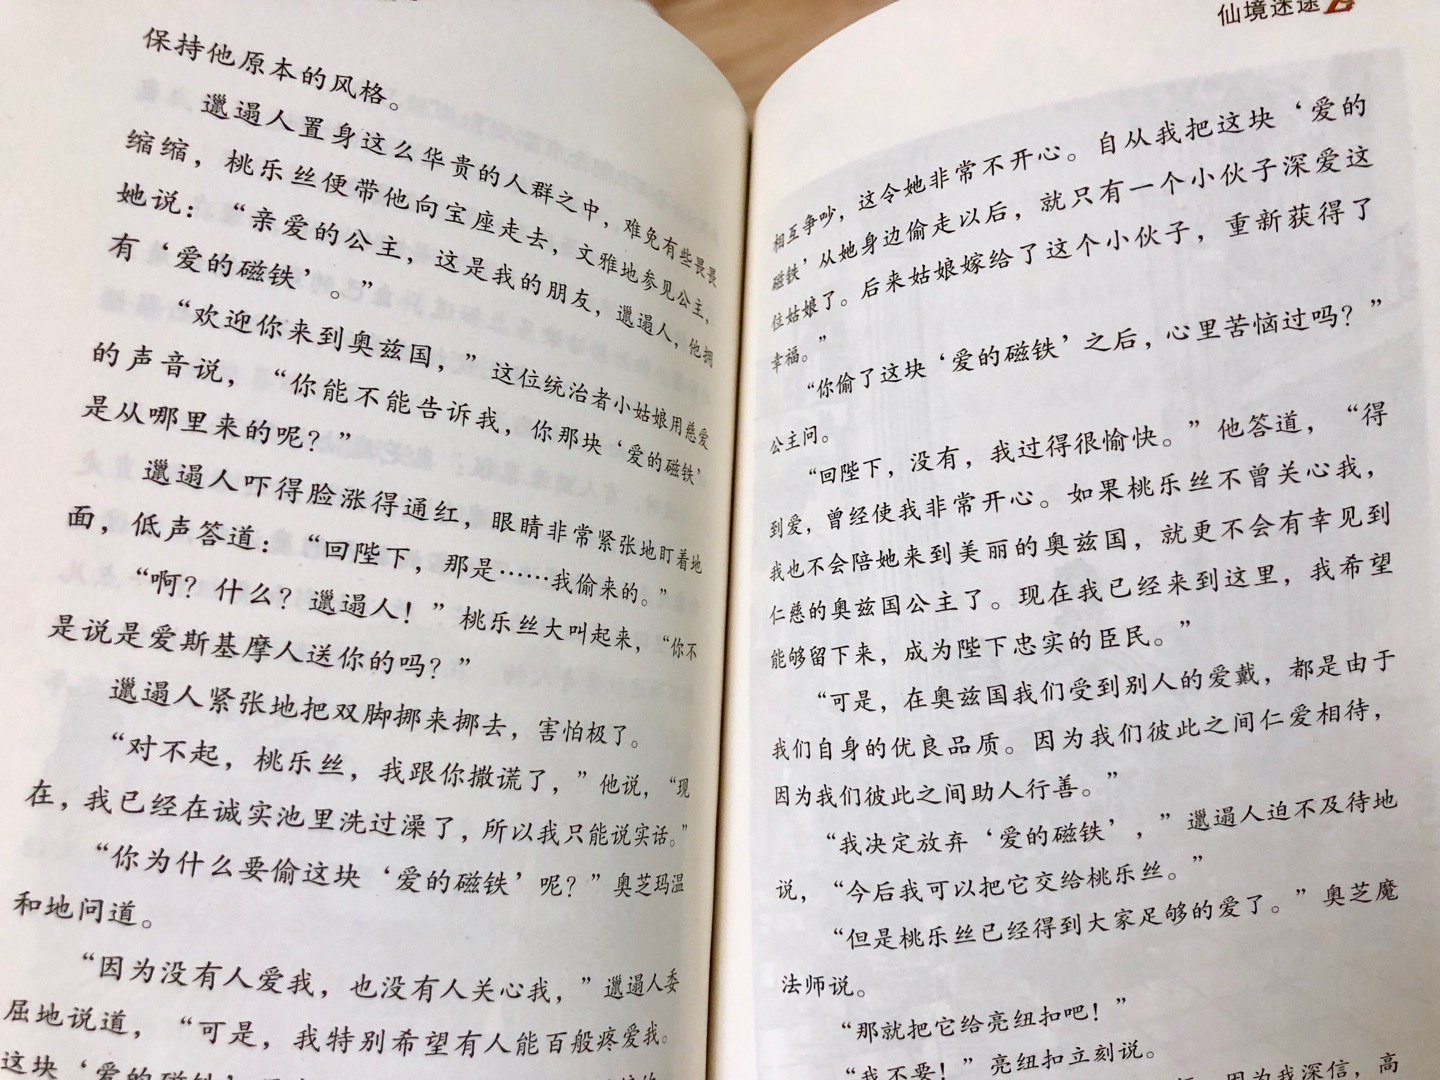 保持他原本的风格。
邋遢人置身这么华贵的人群之中，难免有些畏畏
缩缩，桃乐丝便带他向宝座走去，文雅地参见公主，
她说：“亲爱的公主，这是我的朋友，邋遢人，他拥
有‘爱的磁铁’。”
“欢迎你来到奥兹国，”这位统治者小姑娘用慈爱
的声音说，“你能不能告诉我，你那块‘爱的磁铁’
是从哪里来的呢？”
邋遢人吓得脸涨得通红，眼睛非常紧张地盯着地
面，低声答道：“回陛下，那是……我偷来的。”
“啊？什么？邋遢人！”桃乐丝大叫起来，“你不
是说是爱斯基摩人送你的吗？”
邋遢人紧张地把双脚挪来挪去，害怕极了。
“对不起，桃乐丝，我跟你撒谎了，”他说，“现
在，我已经在诚实池里洗过澡了，所以我只能说实话。”
“你为什么要偷这块‘爱的磁铁’呢？”奥芝玛温
和地问道。
“因为没有人爱我，也没有人关心我，”邋遢人委
屈地说道，“可是，我特别希望有人能百般疼爱我。
这块‘爱的磁铁’
仙境迷途
相互争吵，这令她非常不开心。自从我把这块‘爱的
磁铁’从她身边偷走以后，就只有一个小伙子深爱这
位姑娘了。后来姑娘嫁给了这个小伙子，重新获得了
幸福。”
“你偷了这块‘爱的磁铁’之后，心里苦恼过吗？”
公主问。
“回陛下，没有，我过得很愉快。”他答道，“得
到爱，曾经使我非常开心。如果桃乐丝不曾关心我，
我也不会陪她来到美丽的奥兹国，就更不会有幸见到
仁慈的奥兹国公主了。现在我已经来到这里，我希望
能够留下来，成为陛下忠实的臣民。”
“可是，在奥兹国我们受到别人的爱戴，都是由于
我们自身的优良品质。因为我们彼此之间仁爱相待，
因为我们彼此之间助人行善。”
“我决定放弃‘爱的磁铁’，”邋遢人迫不及待地
说，“今后我可以把它交给桃乐丝。”
“但是桃乐丝已经得到大家足够的爱了。”奥芝魔
法师说。
“那就把它给亮纽扣吧！”
“我不要！”亮纽扣立刻说。
因为我深信，高